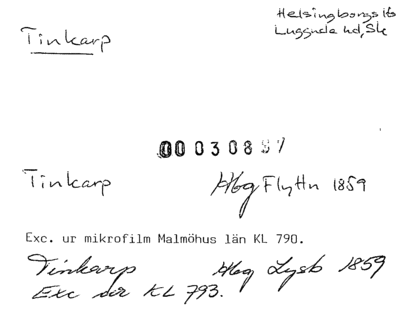 Tinkarp
Helsingborgs ls
Luggude hd, Sk
00030897
Tinkarp Hbg Flyttn 1859
Exc. ur mikrofilm Malmöhus län KL 790.
Tinkarp Hbg Lysb 1859
Exc ur KL 793.